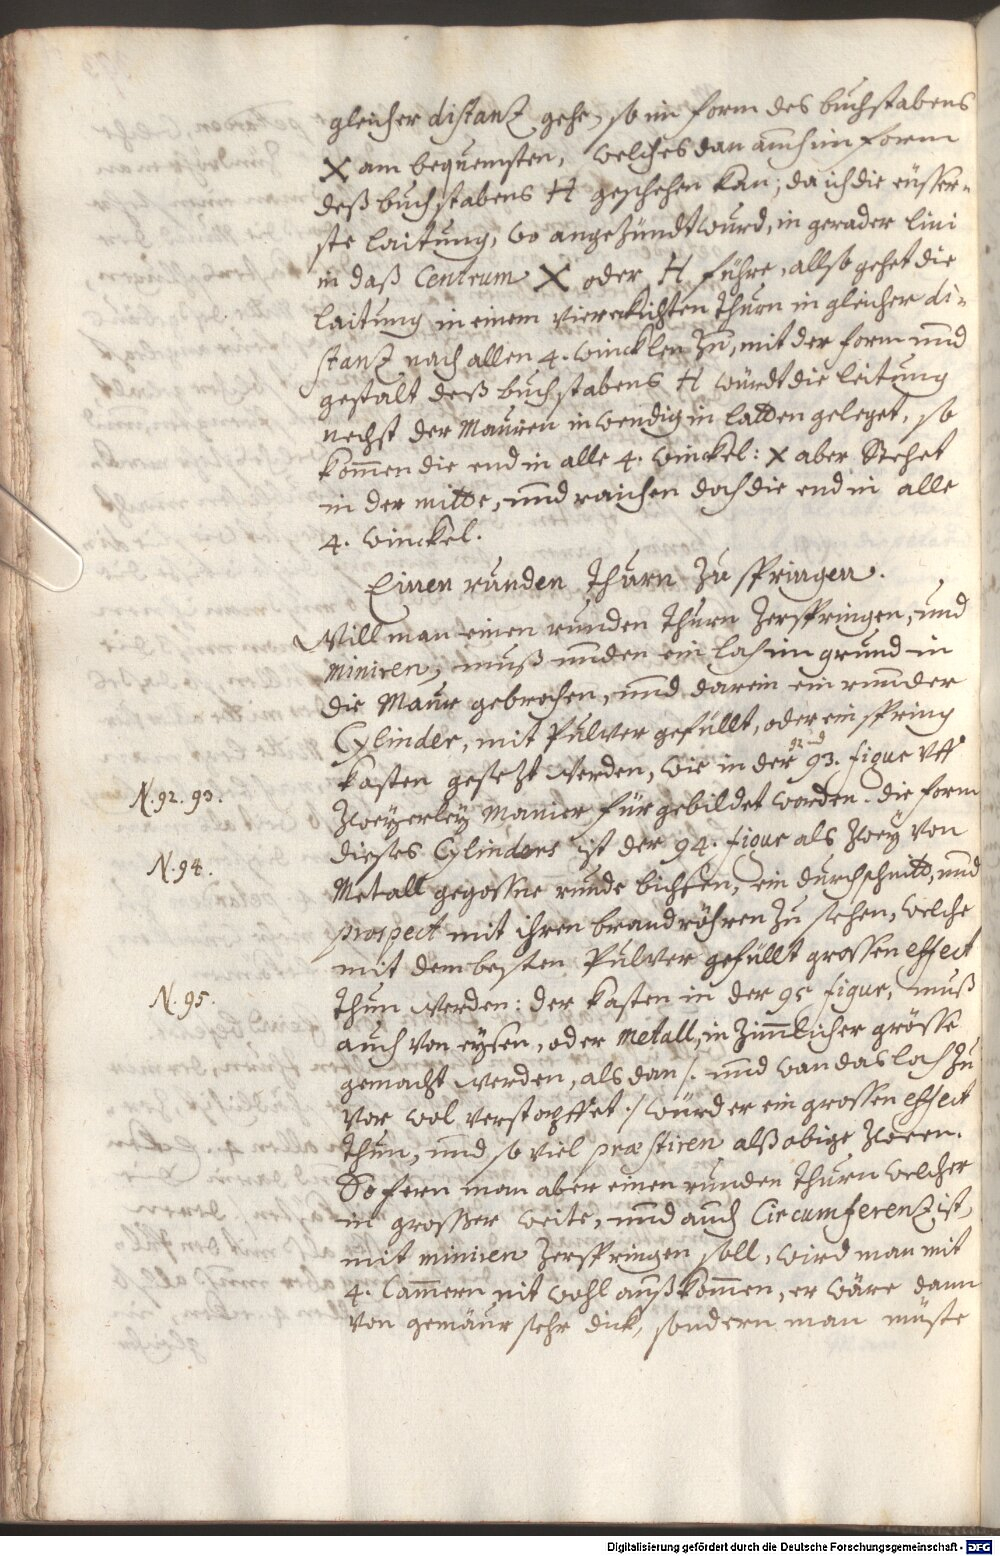 gleicher distantz gehe, so in form des buchstabens
X am bequemsten, welches dan auch im form
deß buchstabens H geschehen kan, da ich die eüsser-
ste laitung, wo angezündt würd, in gerader lini
in daß Centrum X oder H führe, allso gehet die
laitung in einem viereckichten thurn in gleicher di-
stantz nach allen 4. wincklen zu, mit der form und
gestalt deß buchstabens H würdt die leitung
nechst der Mauren inwendig in latden geleget, so
kom̄en die end in alle 4. winckel: X aber stehet
in der mitde, und raichen doch die end in alle
4. winckel.
Einen runden thurn zu springen.
Will man einen runden thurn zerspringen, und
miniren, muß unden ein loch im grund in
die Maur gebrochen, und darein ein runder
Cylinder, mit Pulver gefüllt, oder ein spring
kasten gesetzt werden, wie in der 92 und 93. figur uff
N. 92. 93.
zweyerley Manier fürgebildet worden. die form
dieses Cylinders ist der 94. figur als zwey von
N. 94.
Metall gegossne runde bichsen, ein durchschnitd, und
prospect mit ihren brandröhren zu sehen, welche
mit dem besten Pulver gefüllt grossen effect
N. 95.
thun werden: der kasten in der 95 figur, muß
auch von eysen, oder Metall, in zim̄licher grösse
gemacht werden, alsdan /: und wan das loch zu
vor wol verstopffet :/ würd er ein grossen effect
thun, und so viel præstiren alß obige zween.
So fern man aber einen runden thurn welcher
in grosser weite, und auch Circumferentz ist,
mit miniren zerspringen soll, wird man mit
4. Cam̄ern nit wohl außkom̄en, er wäre dann
von gemäur sehr dick, sondern man müste
Digitalisierung gefördert durch die Deutsche Forschungsgemeinschaft - DFG